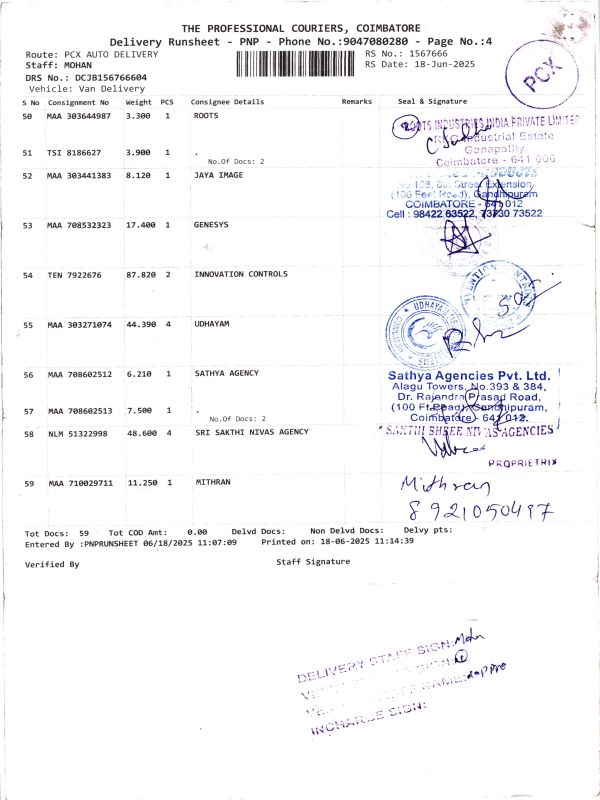 THE PROFESSIONAL COURIERS, COIMBATORE
Delivery Runsheet - PNP - Phone No.:9047080280 - Page No.:4
Route: PCX AUTO DELIVERY
RS No.: 1567666
Staff: MOHAN
RS Date: 18-Jun-2025
DRS No.: DCJB156766604
Vehicle: Van Delivery
PCX
S No Consignment No Weight PCS Consignee Details Remarks Seal & Signature
50 MAA 303644987 3.300 1 ROOTS
ROOTS INDUSTRIES INDIA PRIVATE LIMITED
Industrial Estate
Ganapathy
Coimbatore - 641 006
51 TSI 8186627 3.900 1 .
No.Of Docs: 2
52 MAA 303441383 8.120 1 JAYA IMAGE
PRODUCTS
No.138, 6th Street Extension,
(100 Feet Road), Gandhipuram
COIMBATORE - 641 012
Cell : 98422 63522, 73730 73522
53 MAA 708532323 17.400 1 GENESYS
54 TEN 7922676 87.820 2 INNOVATION CONTROLS
55 MAA 303271074 44.390 4 UDHAYAM
UDHAYAM
56 MAA 708602512 6.210 1 SATHYA AGENCY
Sathya Agencies Pvt. Ltd.
Alagu Towers, No.393 & 384,
Dr. Rajandra Prasad Road,
(100 Ft.Road), Gandhipuram,
Coimbatore - 641 012.
57 MAA 708602513 7.500 1 .
No.Of Docs: 2
58 NLM 51322998 48.600 4 SRI SAKTHI NIVAS AGENCY
SAKTHI SHREE NIVAS AGENCIES
PROPRIETRIX
59 MAA 710029711 11.250 1 MITHRAN
Mithran
8921050497
Tot Docs: 59 Tot COD Amt: 0.00 Delvd Docs: Non Delvd Docs: Delvy pts:
Entered By :PNPRUNSHEET 06/18/2025 11:07:09 Printed on: 18-06-2025 11:14:39
Verified By
Staff Signature
DELIVERY STAFF SIGN: Mohn
INCHARGE SIGN: